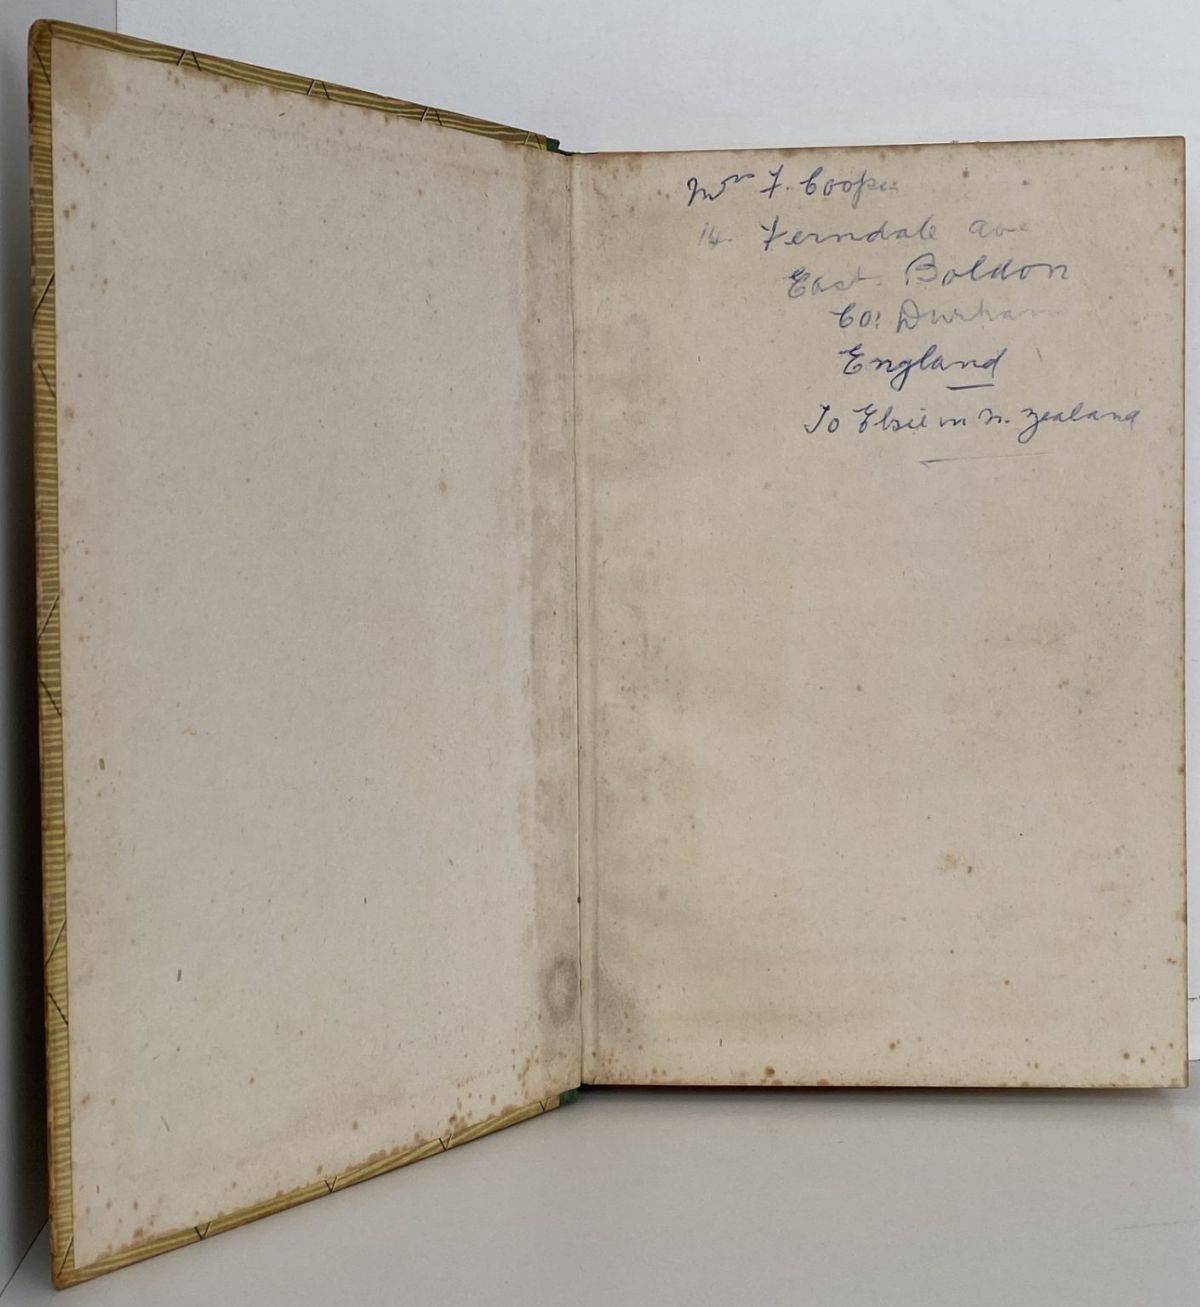 Mrs F. Cooper
14. Ferndale Ave
East Boldon
Co: Durham
England
To Elsie in N. Zealand